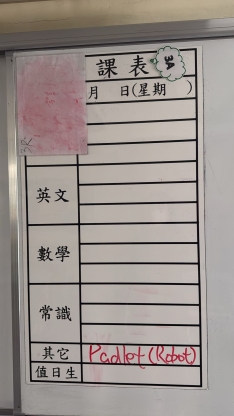 課表
3A
月 日(星期 )
英文
數學
常識
其它 Padlet (Robot)
值日生